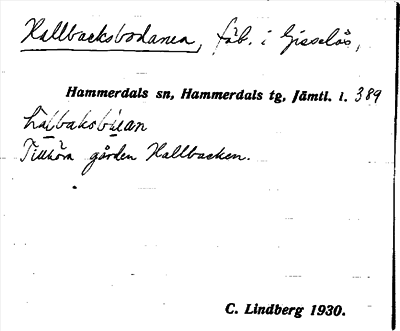 Hallbacksbodarna, fäb. i Gisselås,
Hammerdals sn, Hammerdals tg, Jämtl. l. 389
Tillhöra gården Hallbacken.
C. Lindberg 1930.